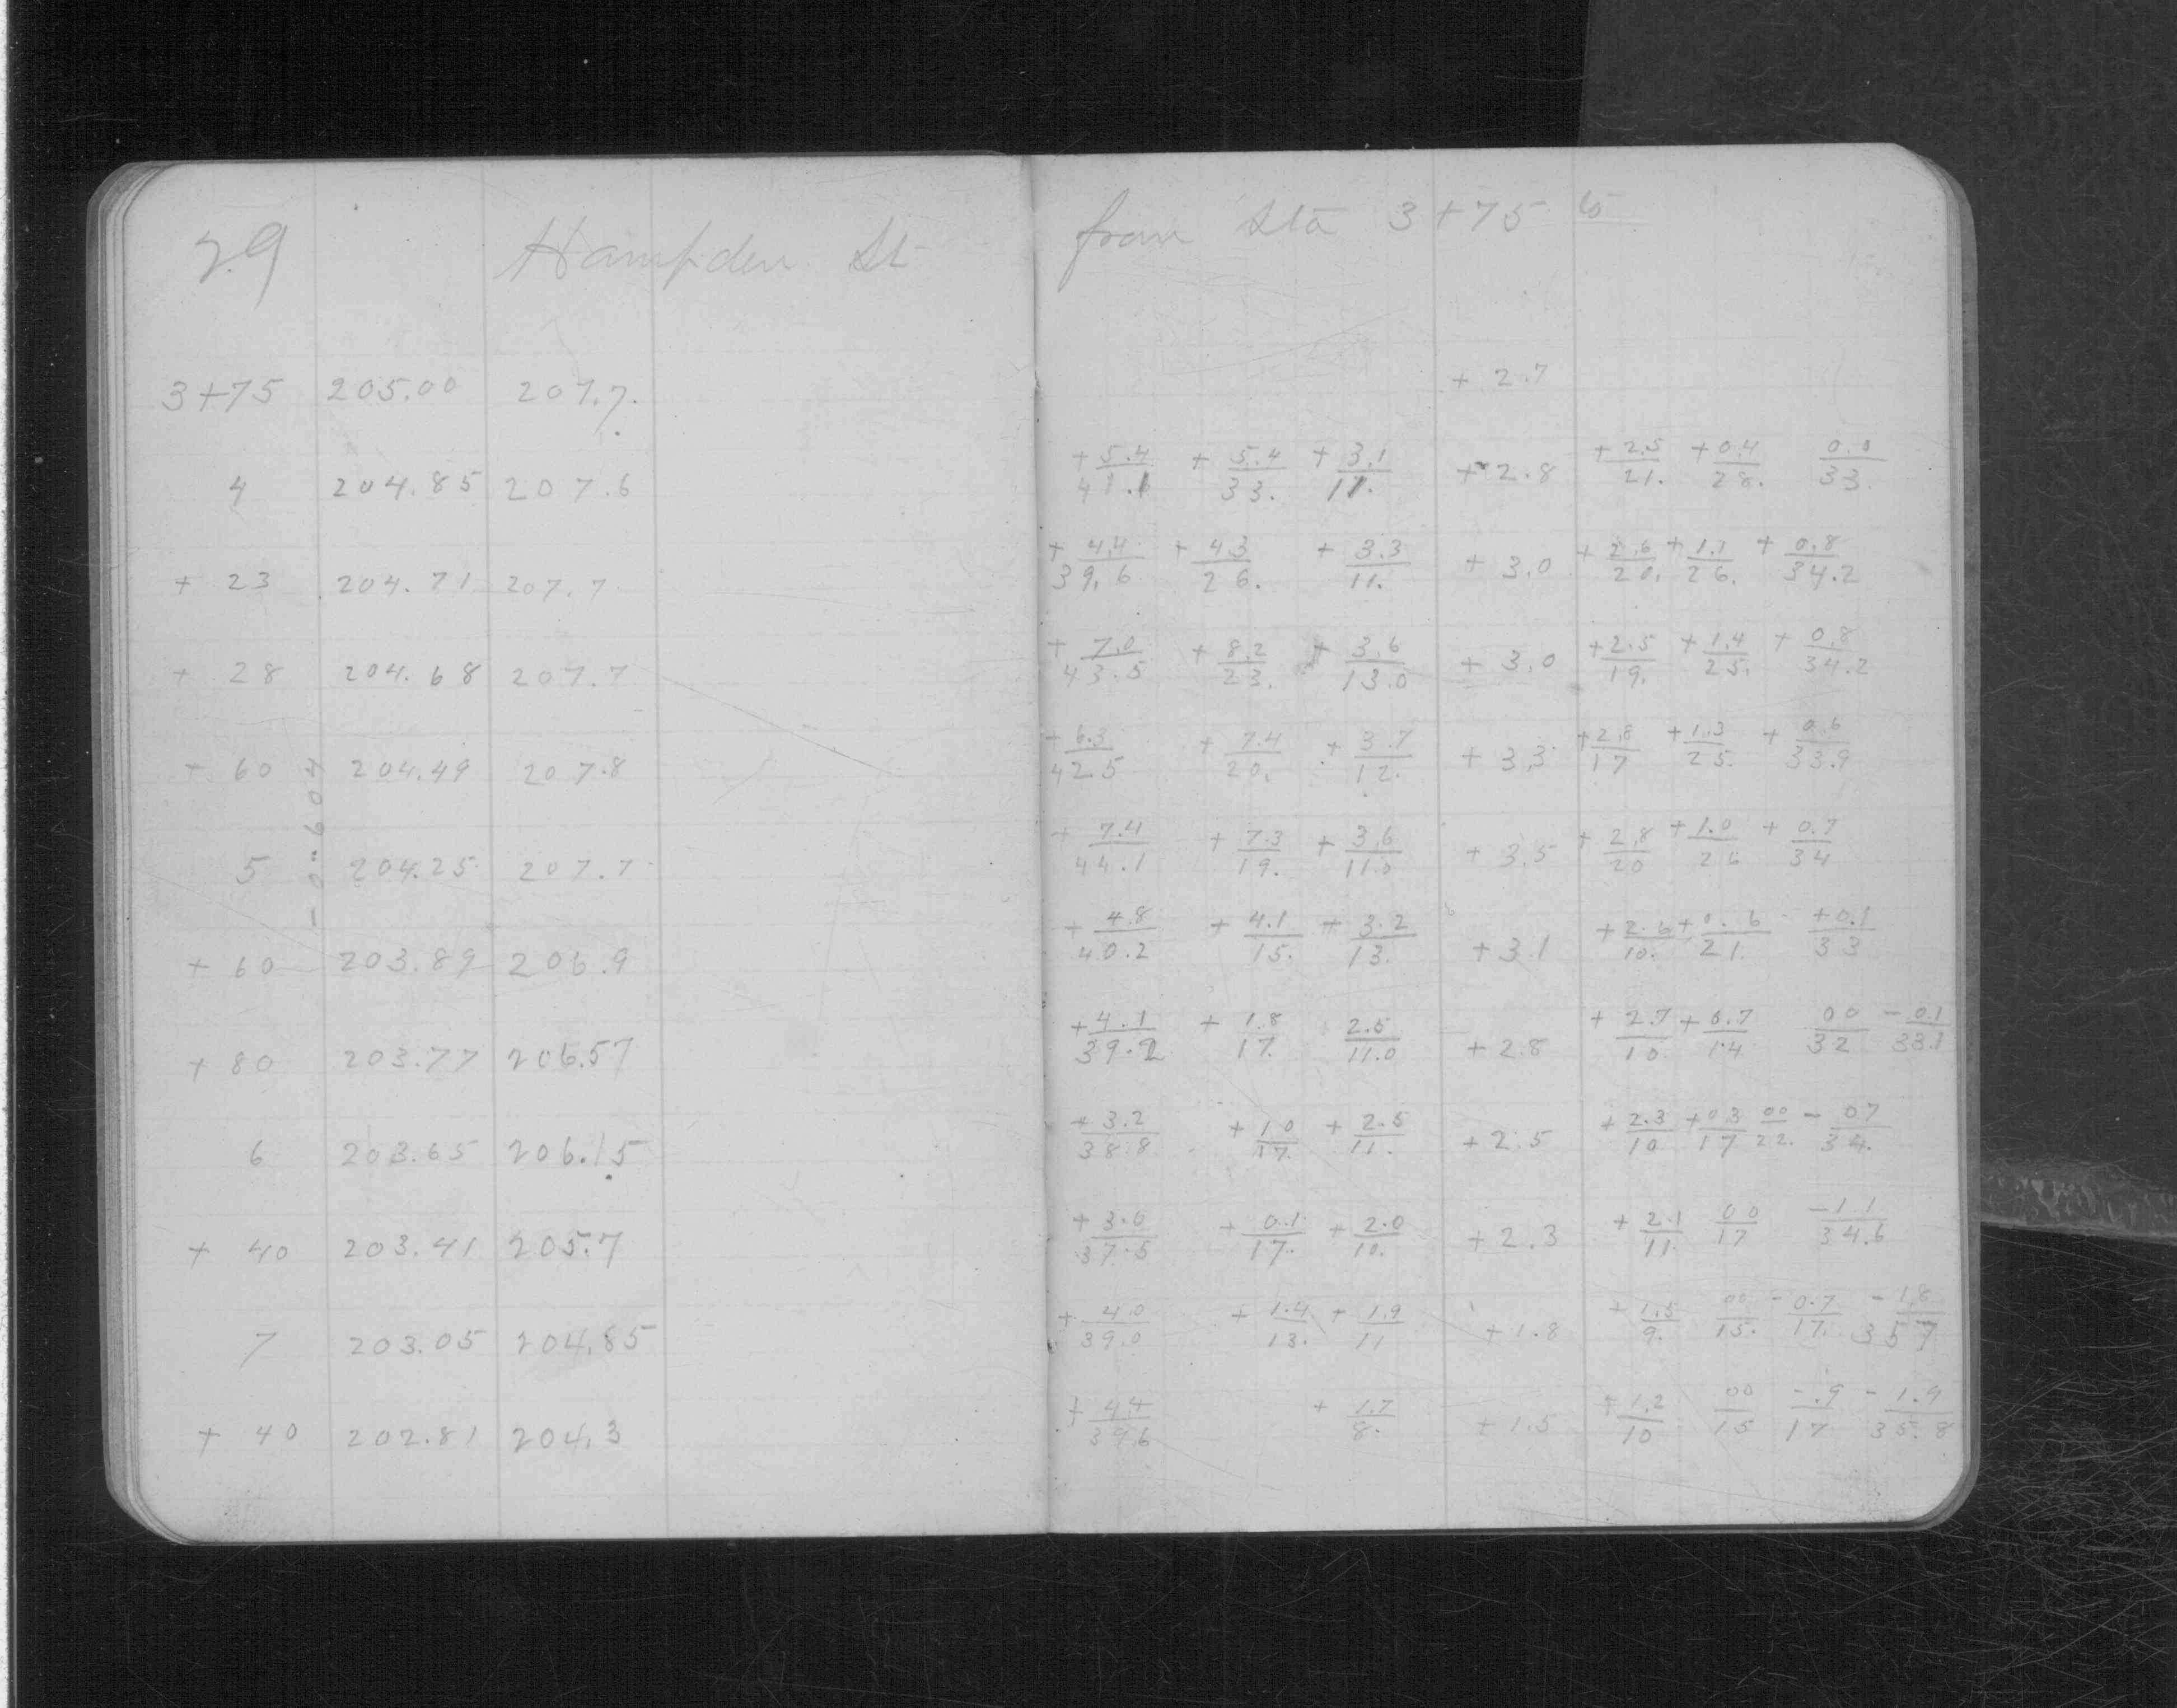 29 Hampden St from Sta 3+75 to
3+75 205.00 207.7. + 2.7
4 204.85 207.6 +5.4/41.1 +5.4/33. +3.1/11. +2.8 +2.5/21. +0.4/28. 0.0/33.
+ 23 204.71 207.7 +4.4/39.6 +4.3/26. +3.3/11. + 3.0 +2.6/20. +1.1/26. +0.8/34.2
+ 28 204.68 207.7 +7.0/43.5 +8.2/23. +3.6/13.0 + 3.0 +2.5/19. +1.4/25. +0.8/34.2
+ 60 204.49 207.8 +6.3/42.5 +7.4/20. +3.7/12. + 3.3 +2.8/17 +1.3/25. +0.6/33.9
- 0.604
5 204.25 207.7 +7.4/44.1 +7.3/19. +3.6/11.0 + 3.5 +2.8/20 +1.0/26 +0.7/34
+ 60 203.89 206.9 +4.8/40.2 +4.1/15. +3.2/13. +3.1 +2.6/10. +0.6/21. +0.1/33
+ 80 203.77 206.57 +4.1/39.2 +1.8/17. 2.5/11.0 +2.8 +2.7/10. +0.7/14 00/32 -0.1/33.1
6 203.65 206.15 +3.2/38.8 +1.0/17. +2.5/11. +2.5 +2.3/10 +0.3/17 00/22. -0.7/34.
+ 40 203.41 205.7 +3.0/37.5 +0.1/17. +2.0/10. +2.3 +2.1/11. 00/17 -1.1/34.6
7 203.05 204.85 +4.0/39.0 +1.4/13. +1.9/11 +1.8 +1.5/9. 00/15. -0.7/17. -1.8/35.7
+ 40 202.81 204.3 +4.4/39.6 +1.7/8. +1.5 +1.2/10 00/15 -.9/17 -1.9/35.8